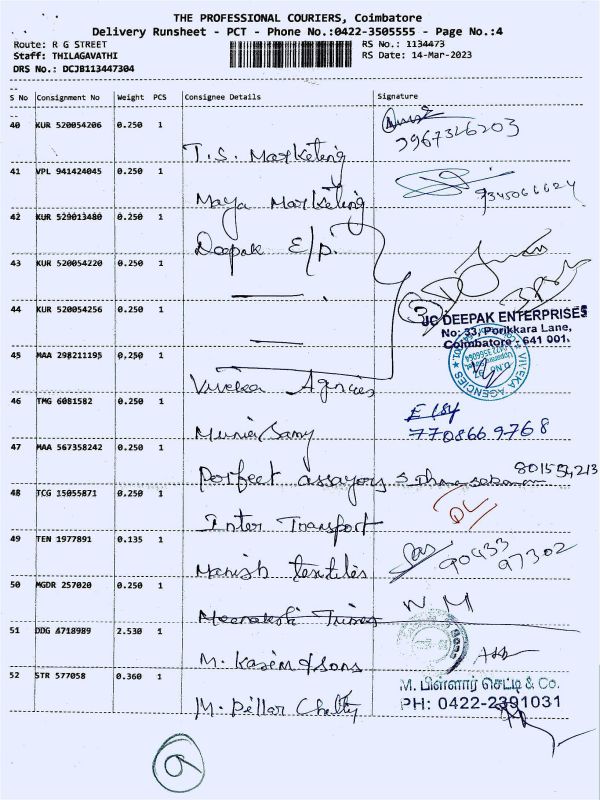 THE PROFESSIONAL COURIERS, Coimbatore
Delivery Runsheet - PCT - Phone No.:0422-3505555 - Page No.:4
Route: R G STREET RS No.: 1134473
Staff: THILAGAVATHI RS Date: 14-Mar-2023
DRS No.: DCJB113447304
S No Consignment No Weight PCS Consignee Details Signature
40 KUR 520054206 0.250 1 T.S. Marketing
41 VPL 941424045 0.250 1 Maya Marketing
42 KUR 529013480 0.250 1 Deepak E/p.
43 KUR 520054220 0.250 1
3
44 KUR 520054256 0.250 1
JC DEEPAK ENTERPRISES
No: 33, Porikkara Lane,
Coimbatore - 641 001.
45 MAA 298211195 0.250 1 Viveka Agencies
VIVEKA AGENCIES
46 TMG 6081582 0.250 1 Munia Samy
7708669768
47 MAA 567358242 0.250 1 Perfect assayors
48 TCG 15055871 0.250 1 Inter Transport
49 TEN 1977891 0.135 1 Manish textiles
90433
97302
50 MGDR 257020 0.250 1 Meenakshi
51 DDG A718989 2.530 1 M. Kasim & Sons
52 STR 577058 0.360 1 M. Pillar Chetty
M. பிள்ளார் செட்டி & Co.
PH: 0422-2391031
9